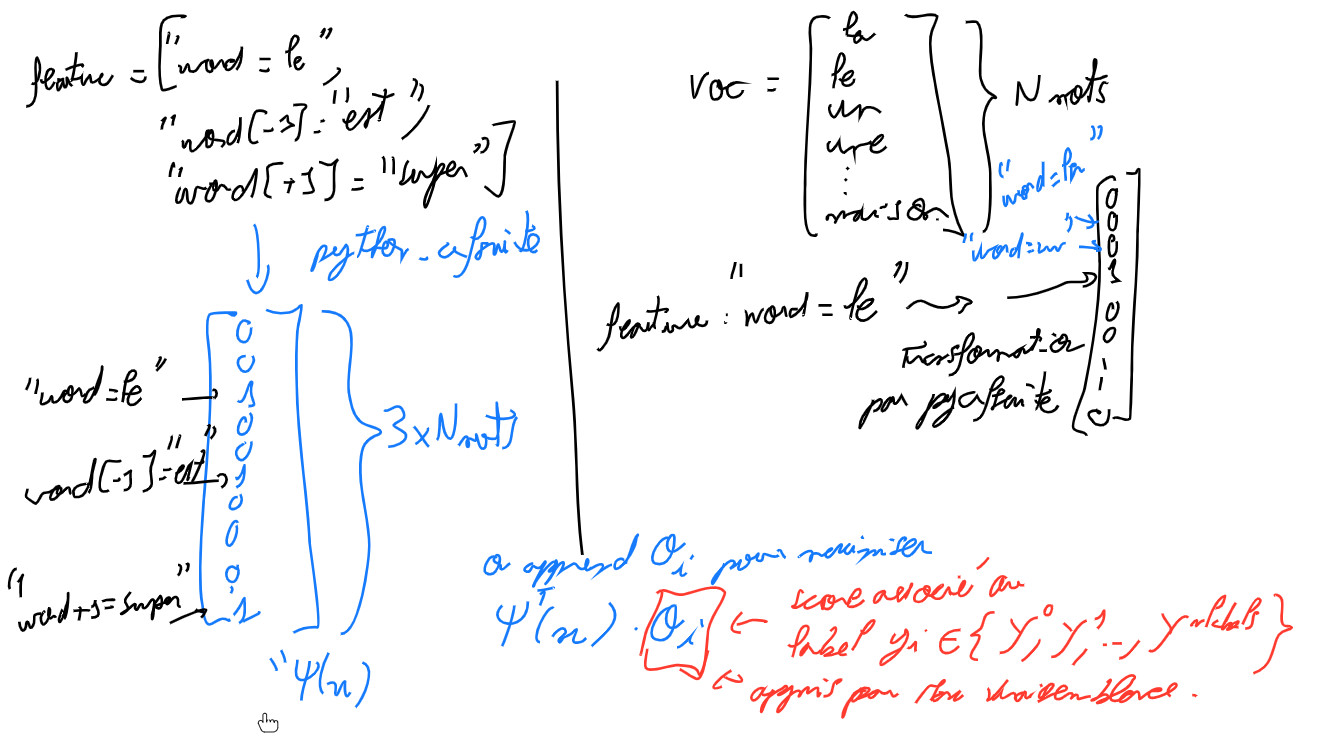 feature = ["word = le",
"word[-1] = "est",
"word[+1] = "super"]
python-crfsuite
0
0
"word=le" → 1
0
0
word[-1]="est" → 1
0
0
0
"word+1=super" → 1
3 x N mots
"Ψ(x)
voc = [la
le
un
une
⋮
maison] } N mots
"word=la"
"word=un"
0
0
0
1
0
0
0
feature : "word = le"
Transformation
par pycrfsuite
on apprend θi pour maximiser
Ψᵀ(x) . θi
score associé au
label yi ∈ {y⁰, y¹, .., y^nlabels}
appris par max vraisemblance.